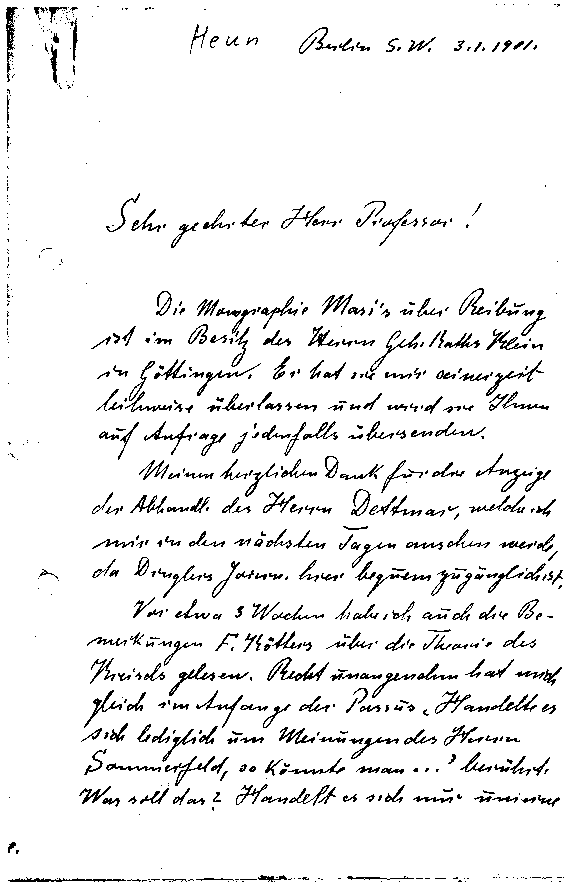 Heun Berlin S.W. 3.1.1901.
Sehr geehrter Herr Professor!
Die Monographie Masi's über Reibung
ist im Besitz des Herrn Geh. Raths Klein
in Göttingen. Er hat sie mir seinerzeit
leihweise überlassen und wird sie Ihnen
auf Anfrage jedenfalls übersenden.
Meinen herzlichen Dank für die Anzeige
der Abhandl. des Herrn Dettmar, welche ich
mir in den nächsten Tagen ansehen werde,
da Dinglers Journ. hier bequem zugänglich ist.
Vor etwa 3 Wochen habe ich auch die Be-
merkungen F. Kötters über die Theorie des
Kreisels gelesen. Recht unangenehm hat mich
gleich im Anfange der Passus „Handelte es
sich lediglich um Meinungen des Herrn
Sommerfeld, so könnte man ..." berührt.
Was soll das? Handelt es sich nur um eine